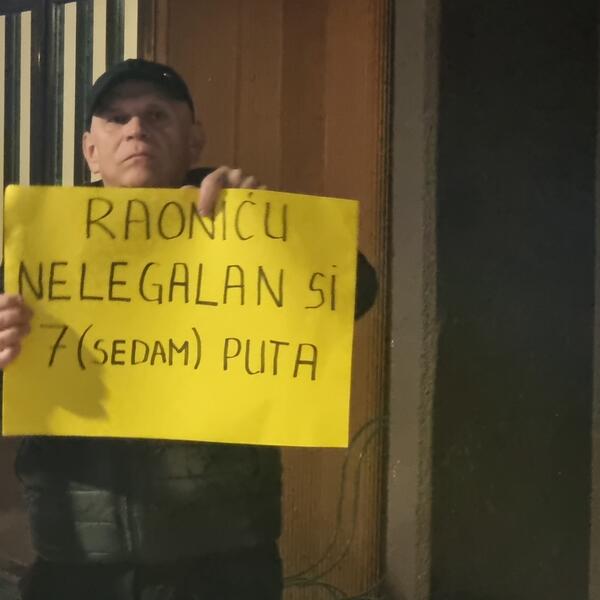 RAONIĆU
NELEGALAN Si
7 (SEDAM) PUTA